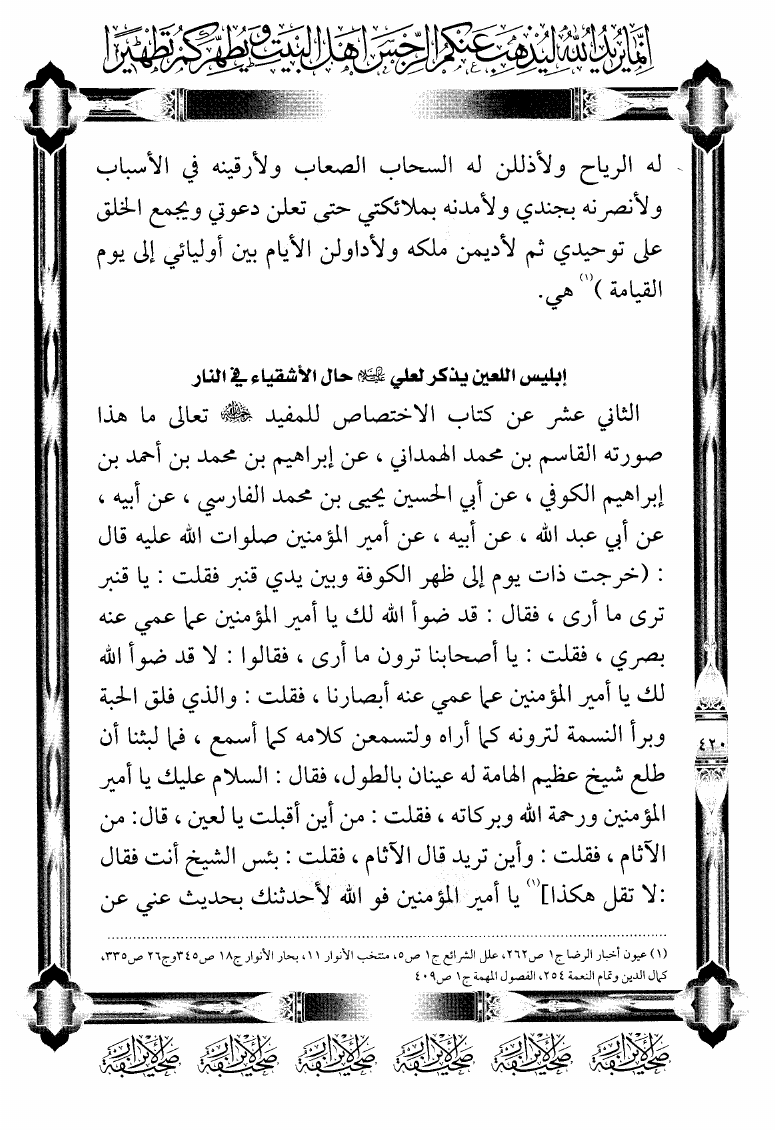 إنما يريد الله ليذهب عنكم الرجس أهل البيت ويطهركم تطهيرا
له الرياح ولأذللن له السحاب الصعاب ولأرقينه في الأسباب
ولأنصرنه بجندي ولأمدنه بملائكتي حتى تعلن دعوتي ويجمع الخلق
على توحيدي ثم لأديمن ملكه ولأداولن الأيام بين أوليائي إلى يوم
القيامة )(١) هي.
إبليس اللعين يذكر لعلي عليه السلام حال الأشقياء في النار
الثاني عشر عن كتاب الاختصاص للمفيد رحمه الله تعالى ما هذا
صورته القاسم بن محمد الهمداني ، عن إبراهيم بن محمد بن أحمد بن
إبراهيم الكوفي ، عن أبي الحسين يحيى بن محمد الفارسي ، عن أبيه ،
عن أبي عبد الله ، عن أبيه ، عن أمير المؤمنين صلوات الله عليه قال
: (خرجت ذات يوم إلى ظهر الكوفة وبين يدي قنبر فقلت : يا قنبر
ترى ما أرى ، فقال : قد ضوأ الله لك يا أمير المؤمنين عما عمي عنه
بصري ، فقلت : يا أصحابنا ترون ما أرى ، فقالوا : لا قد ضوأ الله
لك يا أمير المؤمنين عما عمي عنه أبصارنا ، فقلت : والذي فلق الحبة
وبرأ النسمة لترونه كما أراه ولتسمعن كلامه كما أسمع ، فما لبثنا أن
طلع شيخ عظيم الهامة له عينان بالطول، فقال : السلام عليك يا أمير
المؤمنين ورحمة الله وبركاته ، فقلت : من أين أقبلت يا لعين ، قال: من
الآثام ، فقلت : وأين تريد قال الآثام ، فقلت : بئس الشيخ أنت فقال
:لا تقل هكذا](١) يا أمير المؤمنين فو الله لأحدثنك بحديث عني عن
٤٢٠
(١) عيون أخبار الرضا ج١ ص٢٦٢، علل الشرائع ج١ ص٥، منتخب الأنوار ١١، بحار الأنوار ج١٨ ص٣٤٥وج٢٦ ص٣٣٥،
كمال الدين وتمام النعمة ٢٥٤، الفصول المهمة ج١ ص٤٠٩
صحيفة الأبرار صحيفة الأبرار صحيفة الأبرار صحيفة الأبرار صحيفة الأبرار صحيفة الأبرار